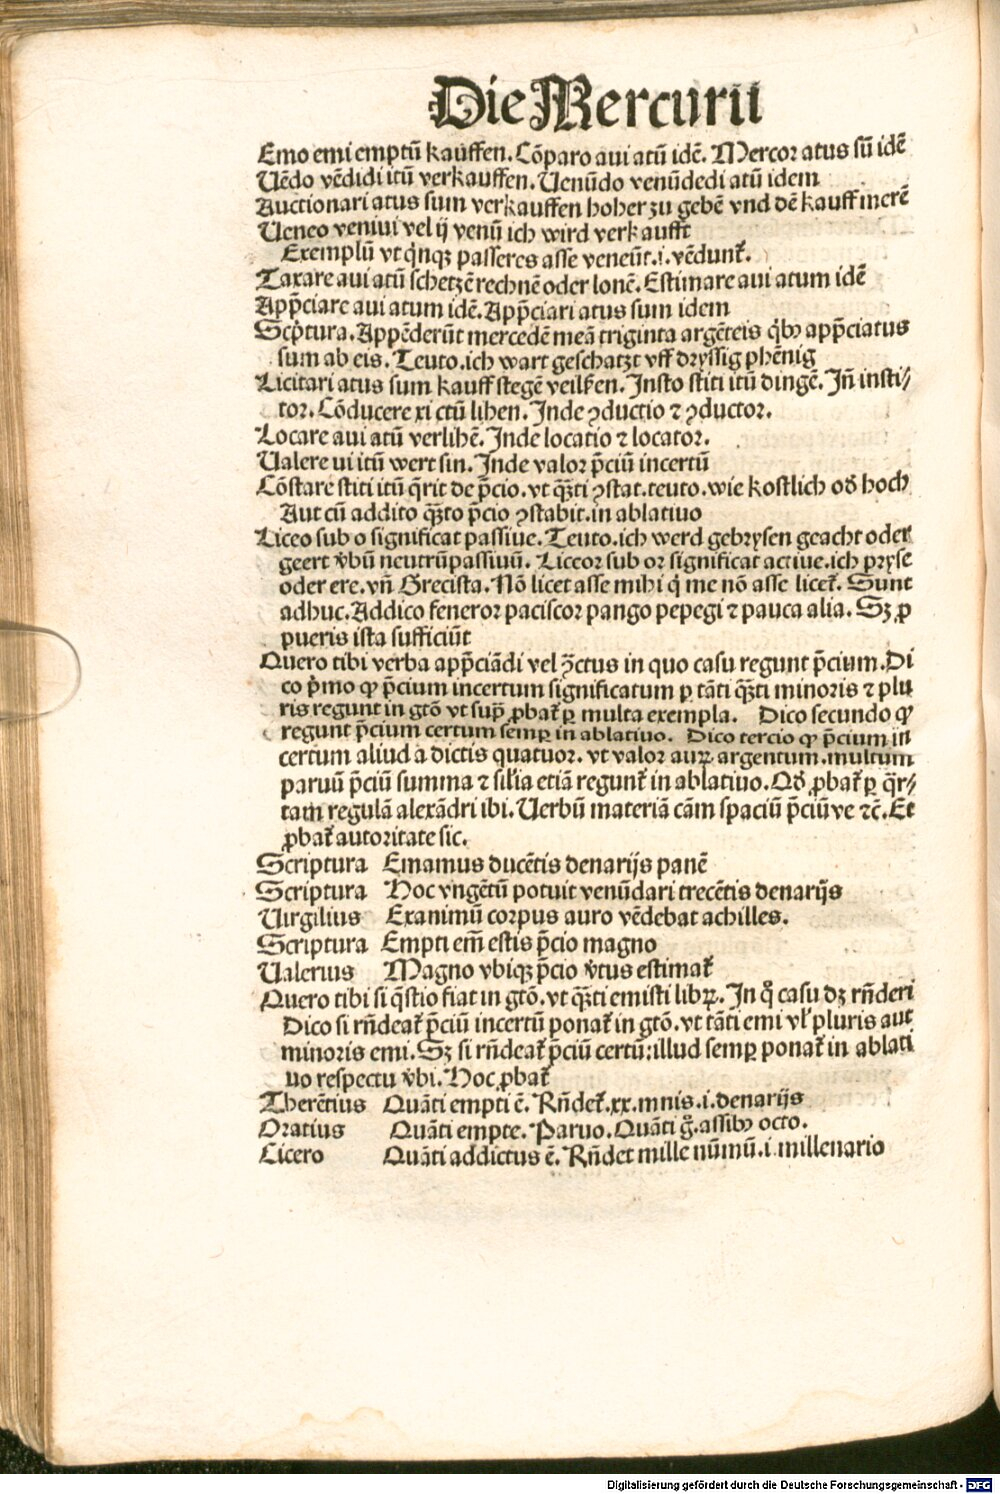 Die Mercurii
Emo emi emptū kauffen. Cōparo aui atū idē. Mercor atus sū idē
Uēdo vēdidi itū verkauffen. Uenūdo venūdedi atū idem
Auctionari atus sum verkauffen hoher zu gebē vnd dē kauff merē
Ueneo veniui vel ij venū ich wird verkaufft
Exemplū vt qͥnqꝫ passeres asse veneūt .i. vēdunt᷑.
Taxare aui atū schetzē rechnē oder lonē. Estimare aui atum idē
App̄ciare aui atum idē. App̄ciari atus sum idem
Scͥptura. Appēderūt mercedē meā triginta argēteis qͥbꝰ app̄ciatus
sum ab eis. Teuto. ich wart geschatzt vff dryssig phēnig
Licitari atus sum kauff stegē veilsͤen. Insto stiti itū dingē. Iñ insti⸗
tor. Cōducere xi ctū lihen. Inde ꝯductio ⁊ ꝯductor.
Locare aui atū verlihē. Inde locatio ⁊ locator.
Ualere ui itū wert sin. Inde valor p̄ciū incertū
Cōstare stiti itū q̄rit de p̄cio. vt qͣꝫti ꝯstat. teuto. wie kostlich oď hoch
Aut cū addito qͣꝫto p̄cio ꝯstabit. in ablatiuo
Liceo sub o significat passiue. Teuto. ich werd gebrysen geacht oder
geert v̄bū neutrūpassiuū. Liceor sub or significat actiue. ich pryse
oder ere. vñ Grecista. Nō licet asse mihi qͥ me nō asse licet᷑. Sunt
adhuc. Addico feneror paciscor pango pepegi ⁊ pauca alia. Sꝫ ꝓ
pueris ista sufficiūt
Quero tibi verba app̄ciādi vel ꝯ̄ctus in quo casu regunt p̄cium. Di
co pͥmo ꝙ p̄cium incertum significatum ꝑ tāti qͣꝫti minoris ⁊ plu
ris regunt in gtō vt supͣ ꝓbat᷑ ꝑ multa exempla. Dico secundo ꝙ
regunt p̄cium certum semꝑ in ablatiuo. Dico tercio ꝙ p̄cium in
certum aliud a dictis quatuor. vt valor aurꝫ argentum. multum
paruū p̄ciū summa ⁊ silʼia etiā regunt᷑ in ablatiuo. Qď ꝓbat᷑ ꝑ qͣr⸗
tam regulā alexādri ibi. Uerbū materiā cām spaciū p̄ciū ve ⁊c̄. Et
ꝓbat᷑ autoritate sic.
Scriptura Emamus ducētis denarijs panē
Scriptura Hoc vngētū potuit venūdari trecētis denarijs
Uirgilius Exanimū corpus auro vēdebat achilles.
Scriptura Empti em̄ estis p̄cio magno
Ualerius Magno vbiqꝫ p̄cio v̄tus estimat᷑
Quero tibi si q̄stio fiat in gtō. vt qͣꝫti emisti librꝫ. In qͦ casu dꝫ rñderi
Dico si rñdeat᷑ p̄ciū incertū ponat᷑ in gtō. vt tāti emi vlʼ pluris aut
minoris emi. Sꝫ si rñdeat᷑ p̄ciū certū: illud semꝑ ponat᷑ in ablati
uo respectu v̄bi. Hoc ꝓbat᷑
Therētius Quāti empti ē. Rñdet᷑. xx. mnis .i. denarijs
Oratius Quāti empte. Paruo. Quāti gͦ. assibꝰ octo.
Cicero Quāti addictus ē. Rñdet mille nūmū .i. millenario
Digitalisierung gefördert durch die Deutsche Forschungsgemeinschaft - DFG